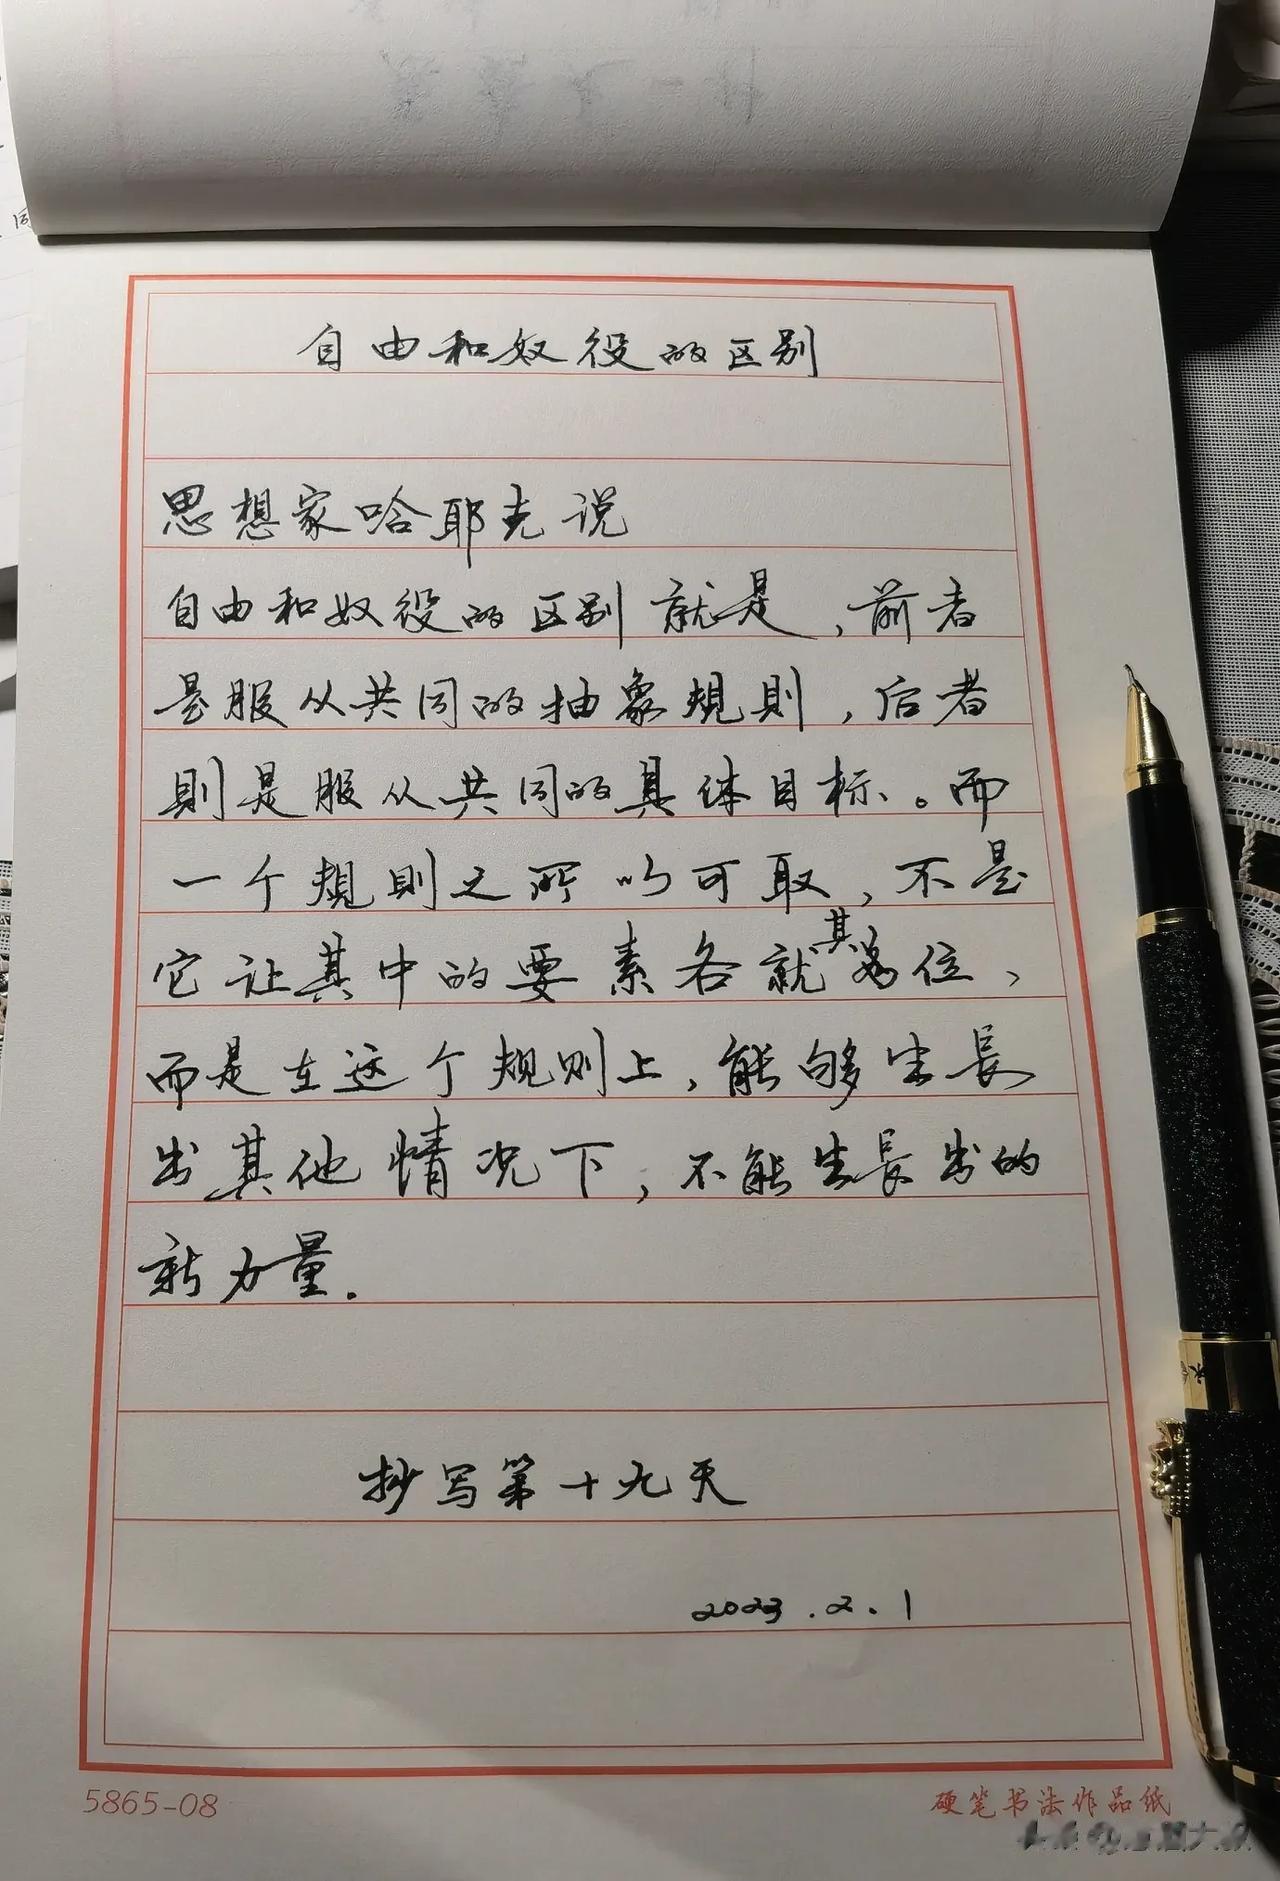 自由和奴役的区别
思想家哈耶克说
自由和奴役的区别就是，前者
是服从共同的抽象規則，后者
則是服从共同的具体目标。而
一个規則之所以可取，不是
它让其中的要素各就其位，
而是在这个规则上，能够生長
出其他情况下，不能生長出的
新力量.
抄写第十九天
2023.2.1
5865-08
硬笔书法作品纸